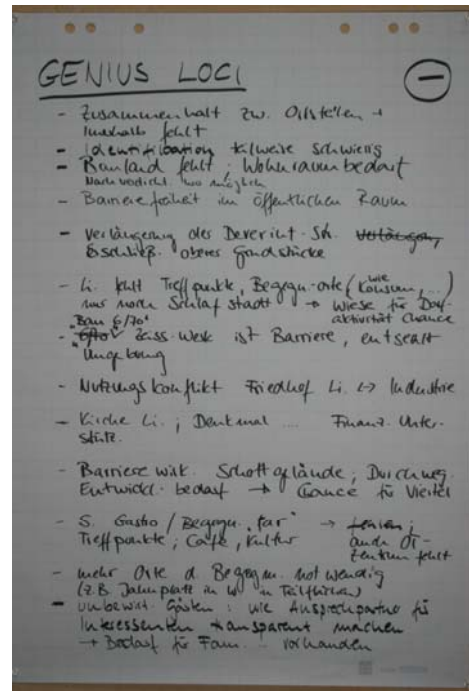 GENIUS LOCI –
- Zusammenhalt zw. Ortsteilen +
innerhalb fehlt
- Identifikation teilweise schwierig
- Bauland fehlt; Wohnraumbedarf
Nachverdicht. wo möglich
- Barrierefreiheit im öffentlichen Raum
- Verlängerung der Str.
oberes Grundstücke
- Li. fehlt Treffpunkte, Begegn.orte (wie Konsum, ...)
nur noch Schlafstadt → Wiese für Dorf-
aktivität Chance
- "Bau 6/70" Zeiss-Werk ist Barriere, entseelt
Umgebung
- Nutzungskonflikt Friedhof Li. ↔ Industrie
- Kirche Li.; Denkmal .... Finanz. Unter-
stütz.
- Barriere wirk. Schottgelände; Durchweg.
Entwickl. bedarf → Chance für Viertel
- S. Gastro / Begegn. → fehlen;
Treffpunkte; Café, Kultur auch OT-
Zentrum fehlt
- mehr Orte d. Begegn. notwendig
(z.B. Jahnplatz in in Teilflächen)
- unbewirt. Gärten: wie Ansprechpartner für
Interessenten transparent machen
→ Bedarf für Fam... vorhanden